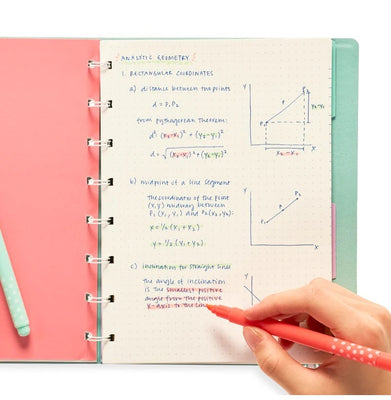 ANALYTIC GEOMETRY
1. RECTANGULAR COORDINATES
a) distance between two points
d = P₁P₂
from pythagorean theorem:
d² (x₂-x₁)² + (y₂-y₁)²
d = √(x₂-x₁)² + (y₂-y₁)²
b) midpoint of a line segment
The coordinates of the point
(x,y) midway between
P₁ (x₁, y₁) and P₂(x₂,y₂):
x = ½ (x₁ + x₂)
y = ½ (y₁ + y₂)
c) Inclination for straight lines
The angle of inclination
is the smallest positive
angle from the positive
x-axis to the line
Y
P₁
X
x₂-x₁
Y
P₁
P
P₂
X
Y